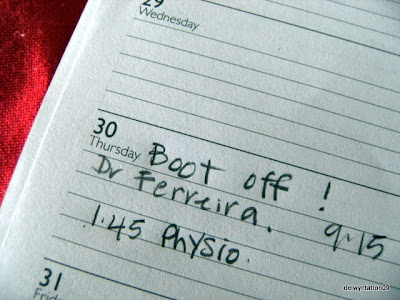 29
Wednesday
30
Thursday Boot off !
Dr Ferreira. 9.15
1.45 Physio.
31
Friday
de-wyntatton09